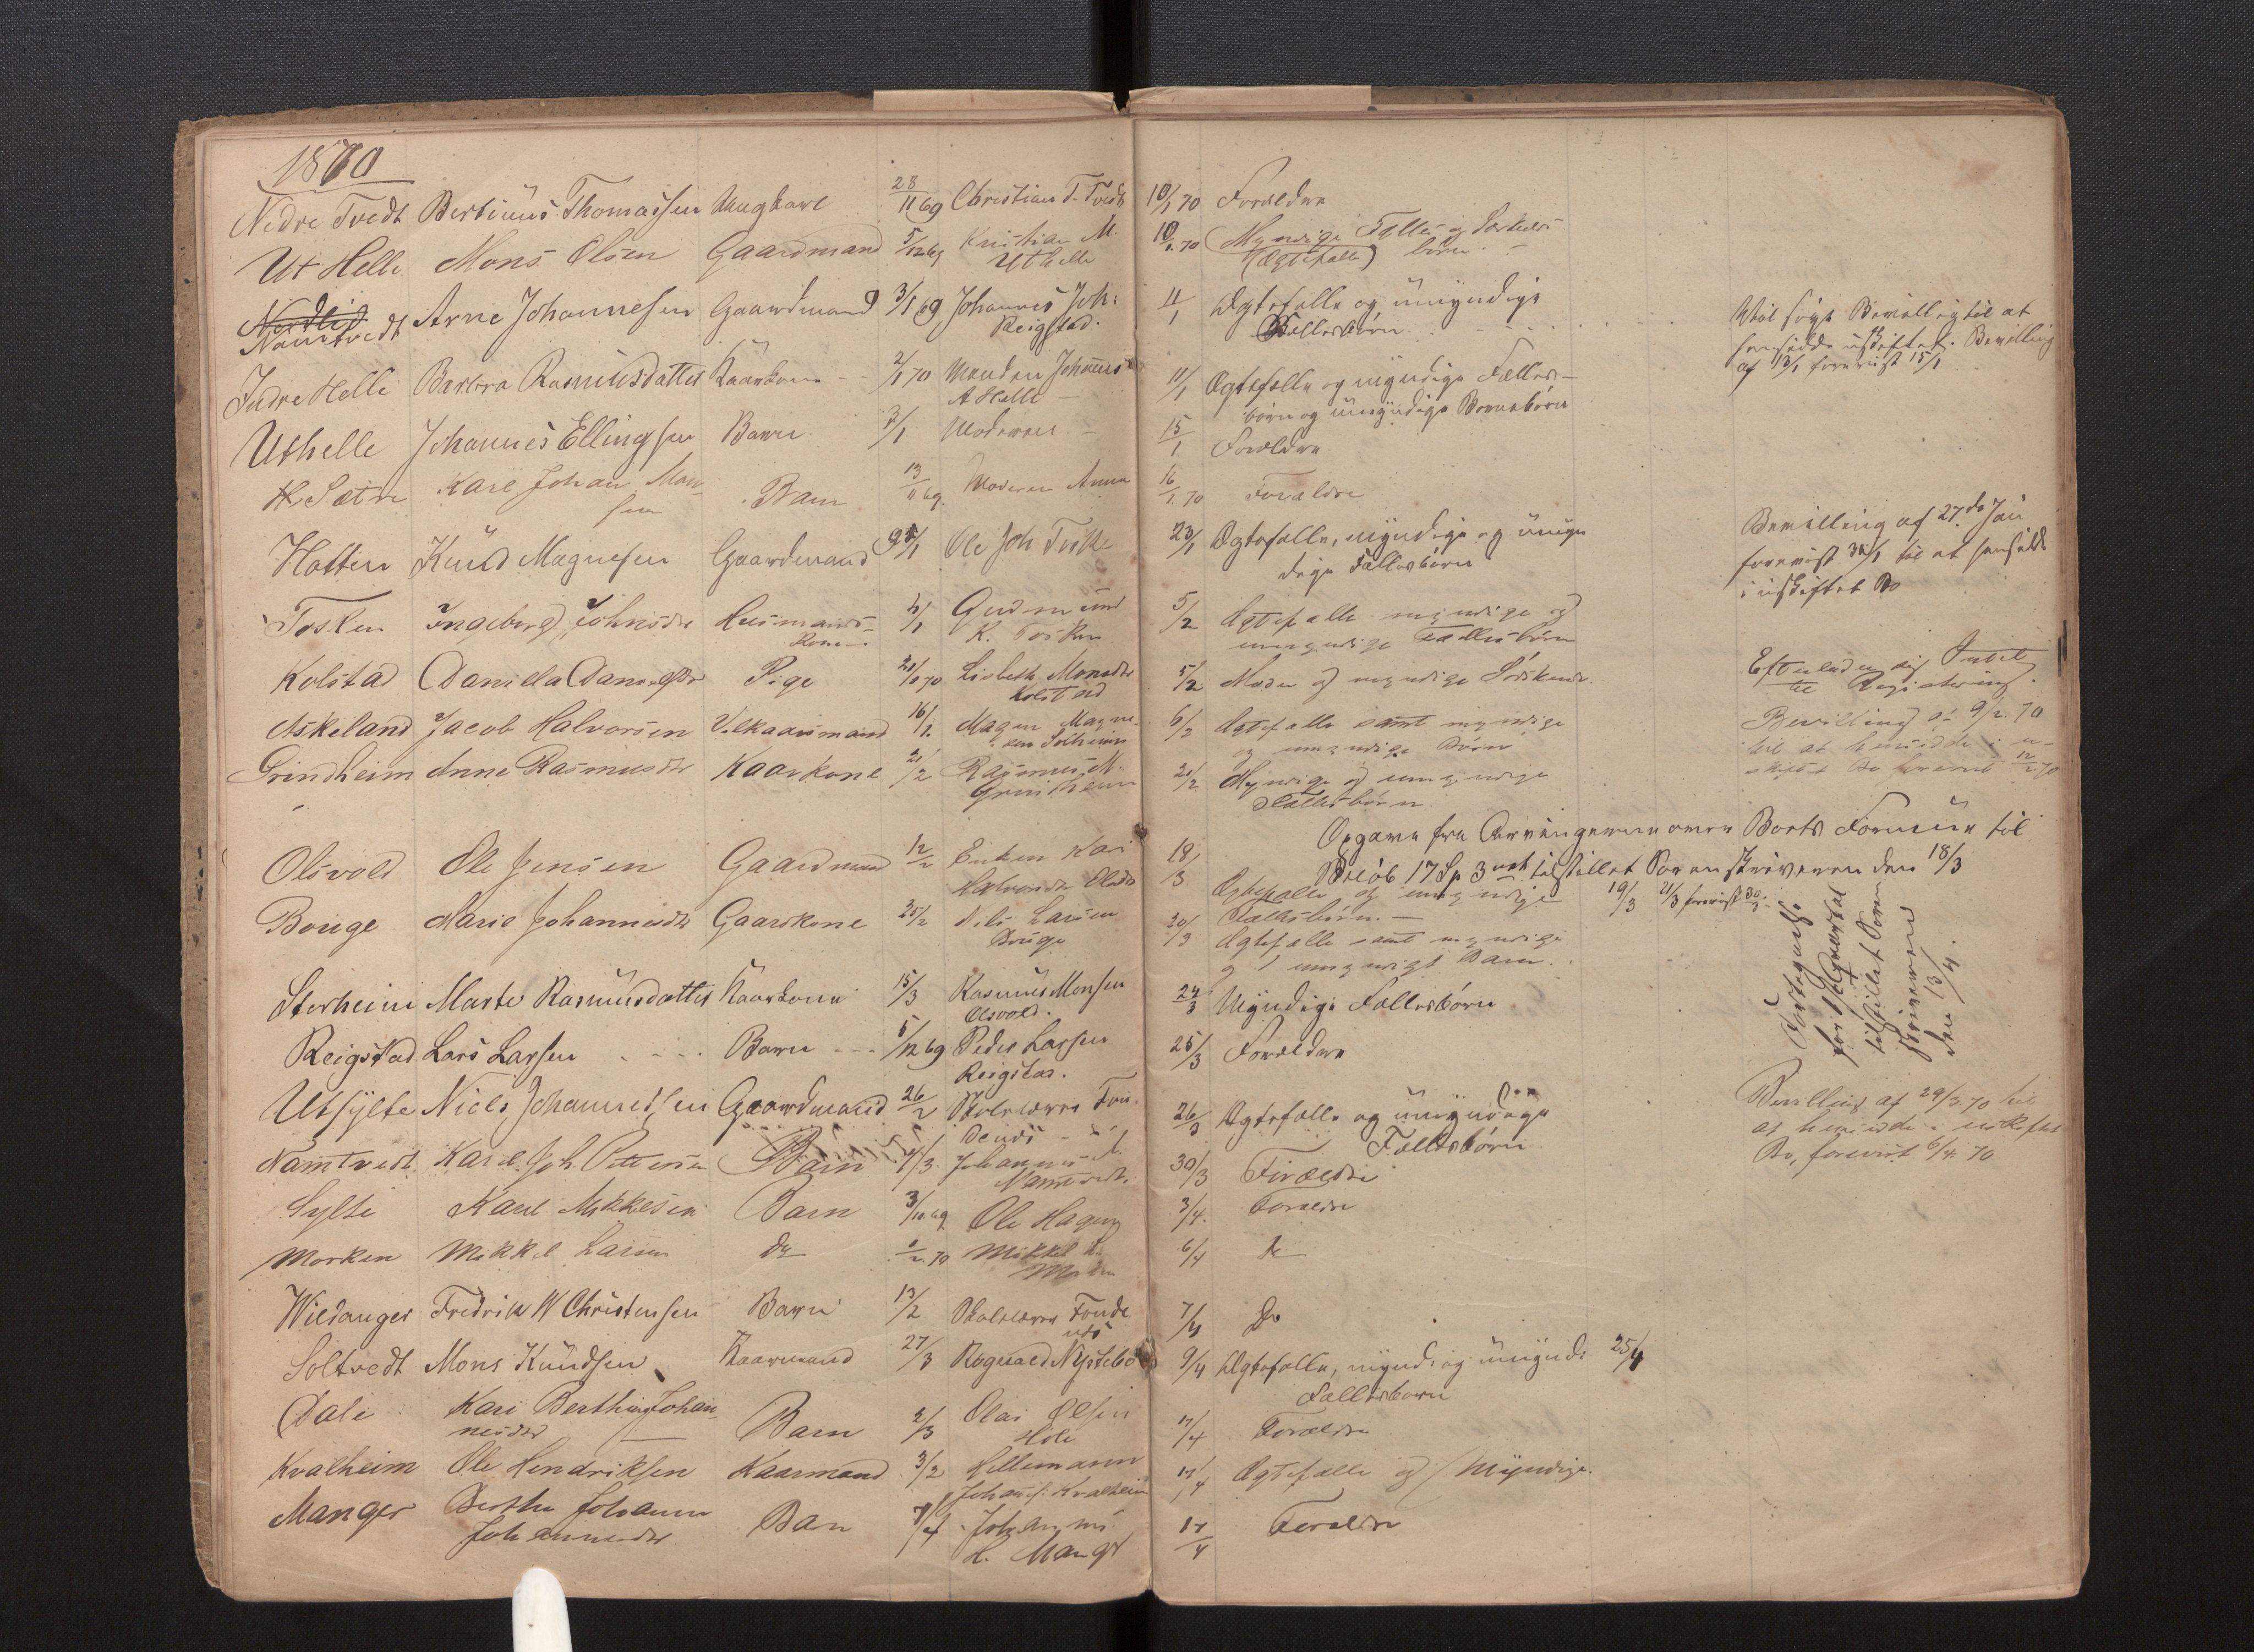 1870
Nedre Tvedt Bertinus Thomassen Ungkarl 28/11 69 Christian T. Tvedt 10/1 70 Forældre
Ut Helle Mons Olsen Gaardmand 5/12 69 Kristian M. 10/1. 70 Myndige Fælles og Særkuls
Uthelle (Ægtefælle) børn
Namtvedt Arne Johannesen Gaardmand 3/1 69 Johannes Joh: 11/1 Ægtefælle og umyndige
Reigstad. Fællesbørn
Vil søge Bevilling til at
hensidde i uskiftet. Bevilling
af 13/1 foreviist 15/1
Indre Helle Barbra Rasmusdatter Kaarkone 2/1 70 Manden Johannes 11/1 Ægtefælle og myndige Fælles-
A Helle børn og umyndige Børnebørn
Uthelle Johannes Ellingsen Barn 3/1 Moderen 15/1 Forældre
Sætre Karl Johan Mon- Barn 13/11 69. Moderen Anna 16/1. 70 Forældre
sen
Hatten Knud Magnesen Gaardmand 9/1 Ole Joh 23/1 Ægtefælle, myndige og umyn
dige Fællesbørn
Bevilling af 27de Jan
forevist 31/1 til at hensidde
i uskiftet Bo
Tosken Ingeborg Johnsdr Husmands- 4/1 Gudmund 5/2 Ægtefælle myndige og
Kone K. Tosken umyndige Fællesbørn
Kolstad Daniella Danielsdr Pige 21/1 70 Lisbeth Monsdr 5/2 Moder og myndige Södskende.
Kolstad
Efterlader sig Intet
til Registering.
Askeland Jacob Halvorsen Vilkaarsmand 16/1 Magne Magne- 6/2 Ægtefælle samt myndige
sen Solheim og umyndige Børn
Bevilling af 9/2. 70
til at hensidde i u-
skiftet Bo forevist 12/2 70
Grindheim Anne Rasmusdr Kaarkone 2/2 Rasmus M. 21/2 Myndige og umyndige
Grindheim Fællesbørn
Opgave fra Arvingerne over Boets Formue til
Olsvold Ole Jensen Gaardmand 12/2 Enken Kari 18/3 Beløb 17 Sp 3 ort tilstillet Sorenskriveren den 18/3
Ægtefælle og umyndige 19/3 21/3 forevist
Fællesbørn.
Bouge Marie Johannesdr Gaardkone 25/2 Nils Larsen 20/3 Ægtefælle samt myndige
Bouge og 1 umyndigt Barn.
Fortegnelse
for
tilstillet Soren
skriveren
den 13/4.
Storheim Marte Rasmusdatter Kaarkone 15/3 Rasmus Monsen 24/3 Myndige Fællesbørn
Olsvold.
Reigstad Lars Larsen Barn 5/12 69 Peder Larsen 25/3 Forældre
Reigstad.
Utsylte Niels Johannessen Gaardmand 26/2 Skolelærer Fon- 26/3 Ægtefælle og umyndige
denæs Fællesbørn
Bevilling af 29/3 70 til
at hensidde i uskiftet
Bo, forevist 6/4 70
Namtvedt Karl Joh. Pettersen Barn 4/3. Johannes A. 30/3 Forældre
Namtvedt
Sylte Karl Mikkelsen Barn 3/10 69 Ole Hagen 3/4. Forældre
Morken Mikkel Larsen do 70 Mikkel L. 6/4 do
Morken
Wildanger Fredrik W Christensen Barn 13/2 Skolelærer Fonde 7/4 Do
næs
Soltvedt Mons Knudsen Kaarmand 27/3 Rognald Nystebö 9/4 Ægtefælle, mynd: og umynd: 25/4
Fællesbørn
Dale Kari Berthea Johan- Barn 2/3 Olai Olsen 17/4 Forældre
nesdr Hole
Kvalheim Ole Hendriksen Kaarmand 3/2 Hillemann 17/4 Ægtefælle og Myndige.
Johans. Kvalheim
Manger Berthe Johanne Ban 7/4 Johannes 17/4 Forældre
Johannesdr H. Mangr